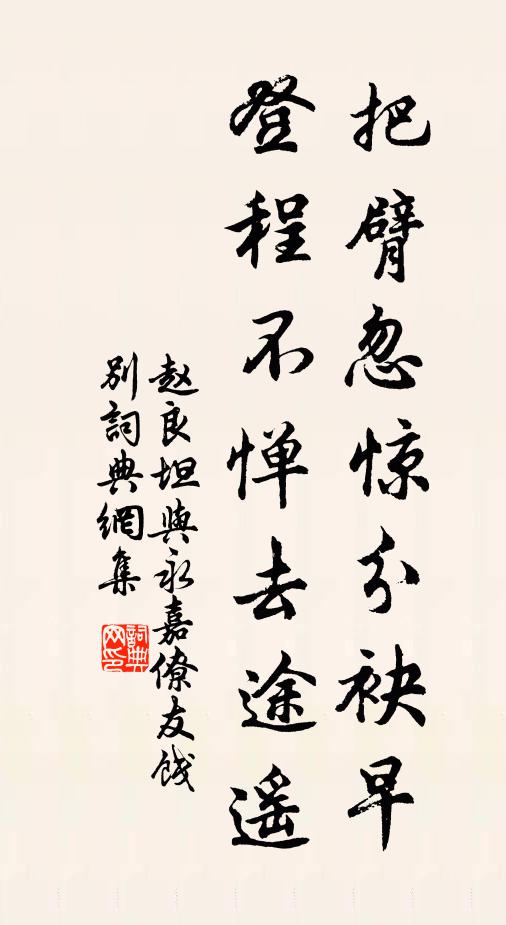 把臂忽惊分袂早
登程不惮去途遥
赵良坦與永嘉僚友饯
别詞典網集
詞典網印